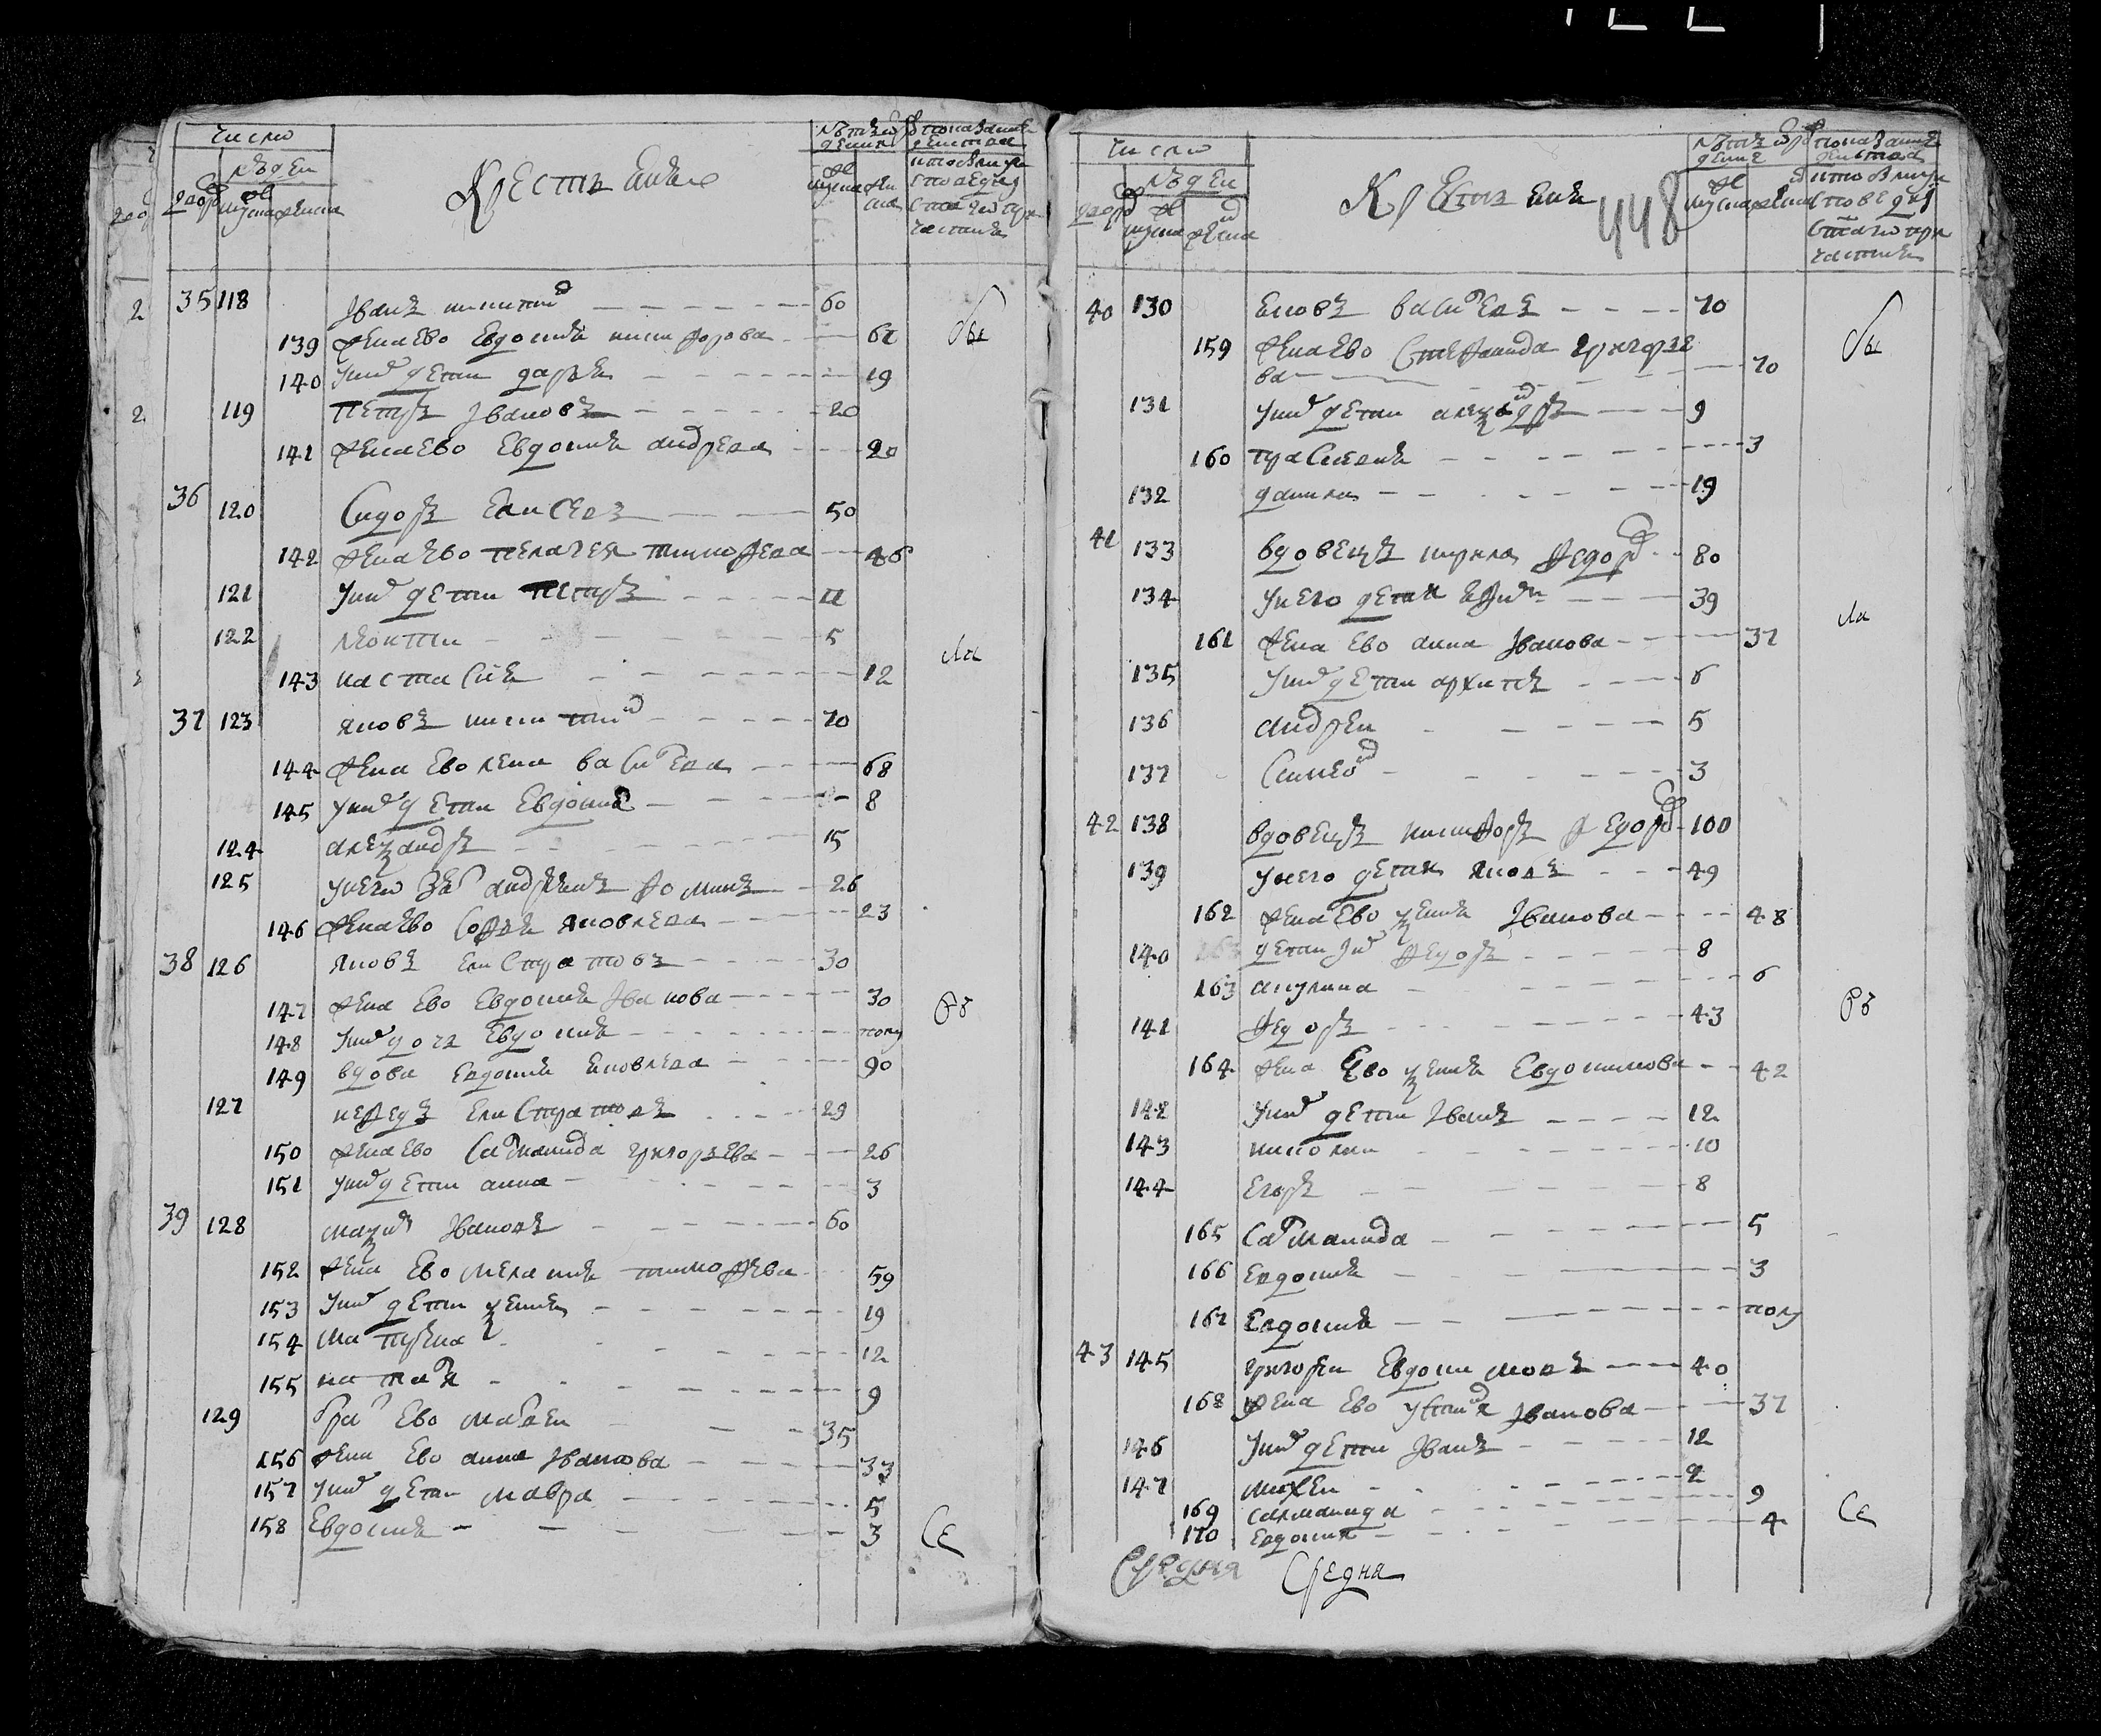 число
людей
двор
мужеска женска
Крестьяне
лета от рождения
мужеска женска
показание действа кто был у исповеди и святого причастия
35 118 Иванъ никитинъ 60
139 жена ево Евдокия никифорова 61
140 у них дети дарья 19
119 петръ Ивановъ 20
141 жена ево Евдокия андреева 20
36 120 Сидоръ Елисеевъ 50
142 жена ево пелагея тимофеева 46
121 у них дети петръ 11
122 леонтий 5
143 настасия 12
37 123 яковъ никитинъ 70
144 жена ево лена васильева 68
145 у них дети Евдокия 8
124 алеѯандръ 15
125 у него зять андреянъ фоминъ 26
146 жена ево софья яковлева 23
38 126 яковъ елистратовъ 30
147 жена ево Евдокия Иванова 30
148 у них дочь Евдокия полу
149 вдова евдокия яковлева 90
127 нефедъ елистратовъ 29
150 жена ево саломанида григорьева 26
151 у них дети анна 3
39 128 маѯимъ Ивановъ 60
152 жена ево мелания тимофеева 59
153 у них дети ѯения 19
154 матрена 12
155 наталья 9
129 брат ево матвей 35
156 жена ево анна Иванова 33
157 у них дети мавра 5
158 Евдокия 3
бы
ла
го
се
число
людей
двор
мужеска женска
Крестьяне
448
лета от рождения
мужеска женска
показание действа кто был у исповеди и святого причастия
40 130 яковъ васильевъ 70
159 жена ево Стефанида григорье
ва 70
131 у них дети алеѯандръ 9
160 прасковья 3
132 данила 19
41 133 вдовецъ кирила федоровъ 80
134 у него дети ефимъ 39
161 жена ево анна Иванова 37
135 у них дети архипъ 6
136 андрей 5
137 симеонъ 3
42 138 вдовецъ никифоръ федоровъ 100
139 у него дети яковъ 49
162 жена ево ѯения Иванова 48
140 дети их федоръ 8
163 акулина 6
141 федоръ 43
164 жена ево ѯения Евдокимова 42
142 у них дети Иванъ 12
143 николай 10
144 егоръ 8
165 саломанида 5
166 евдокия 3
167 евдокия полу
43 145 григорей Евдокимовъ 40
168 жена ево устинья Иванова 37
146 у них дети Иванъ 12
147 михей 2
169 саломанида 9
170 евдокия 4
бы
ла
го
се
Средня Средня